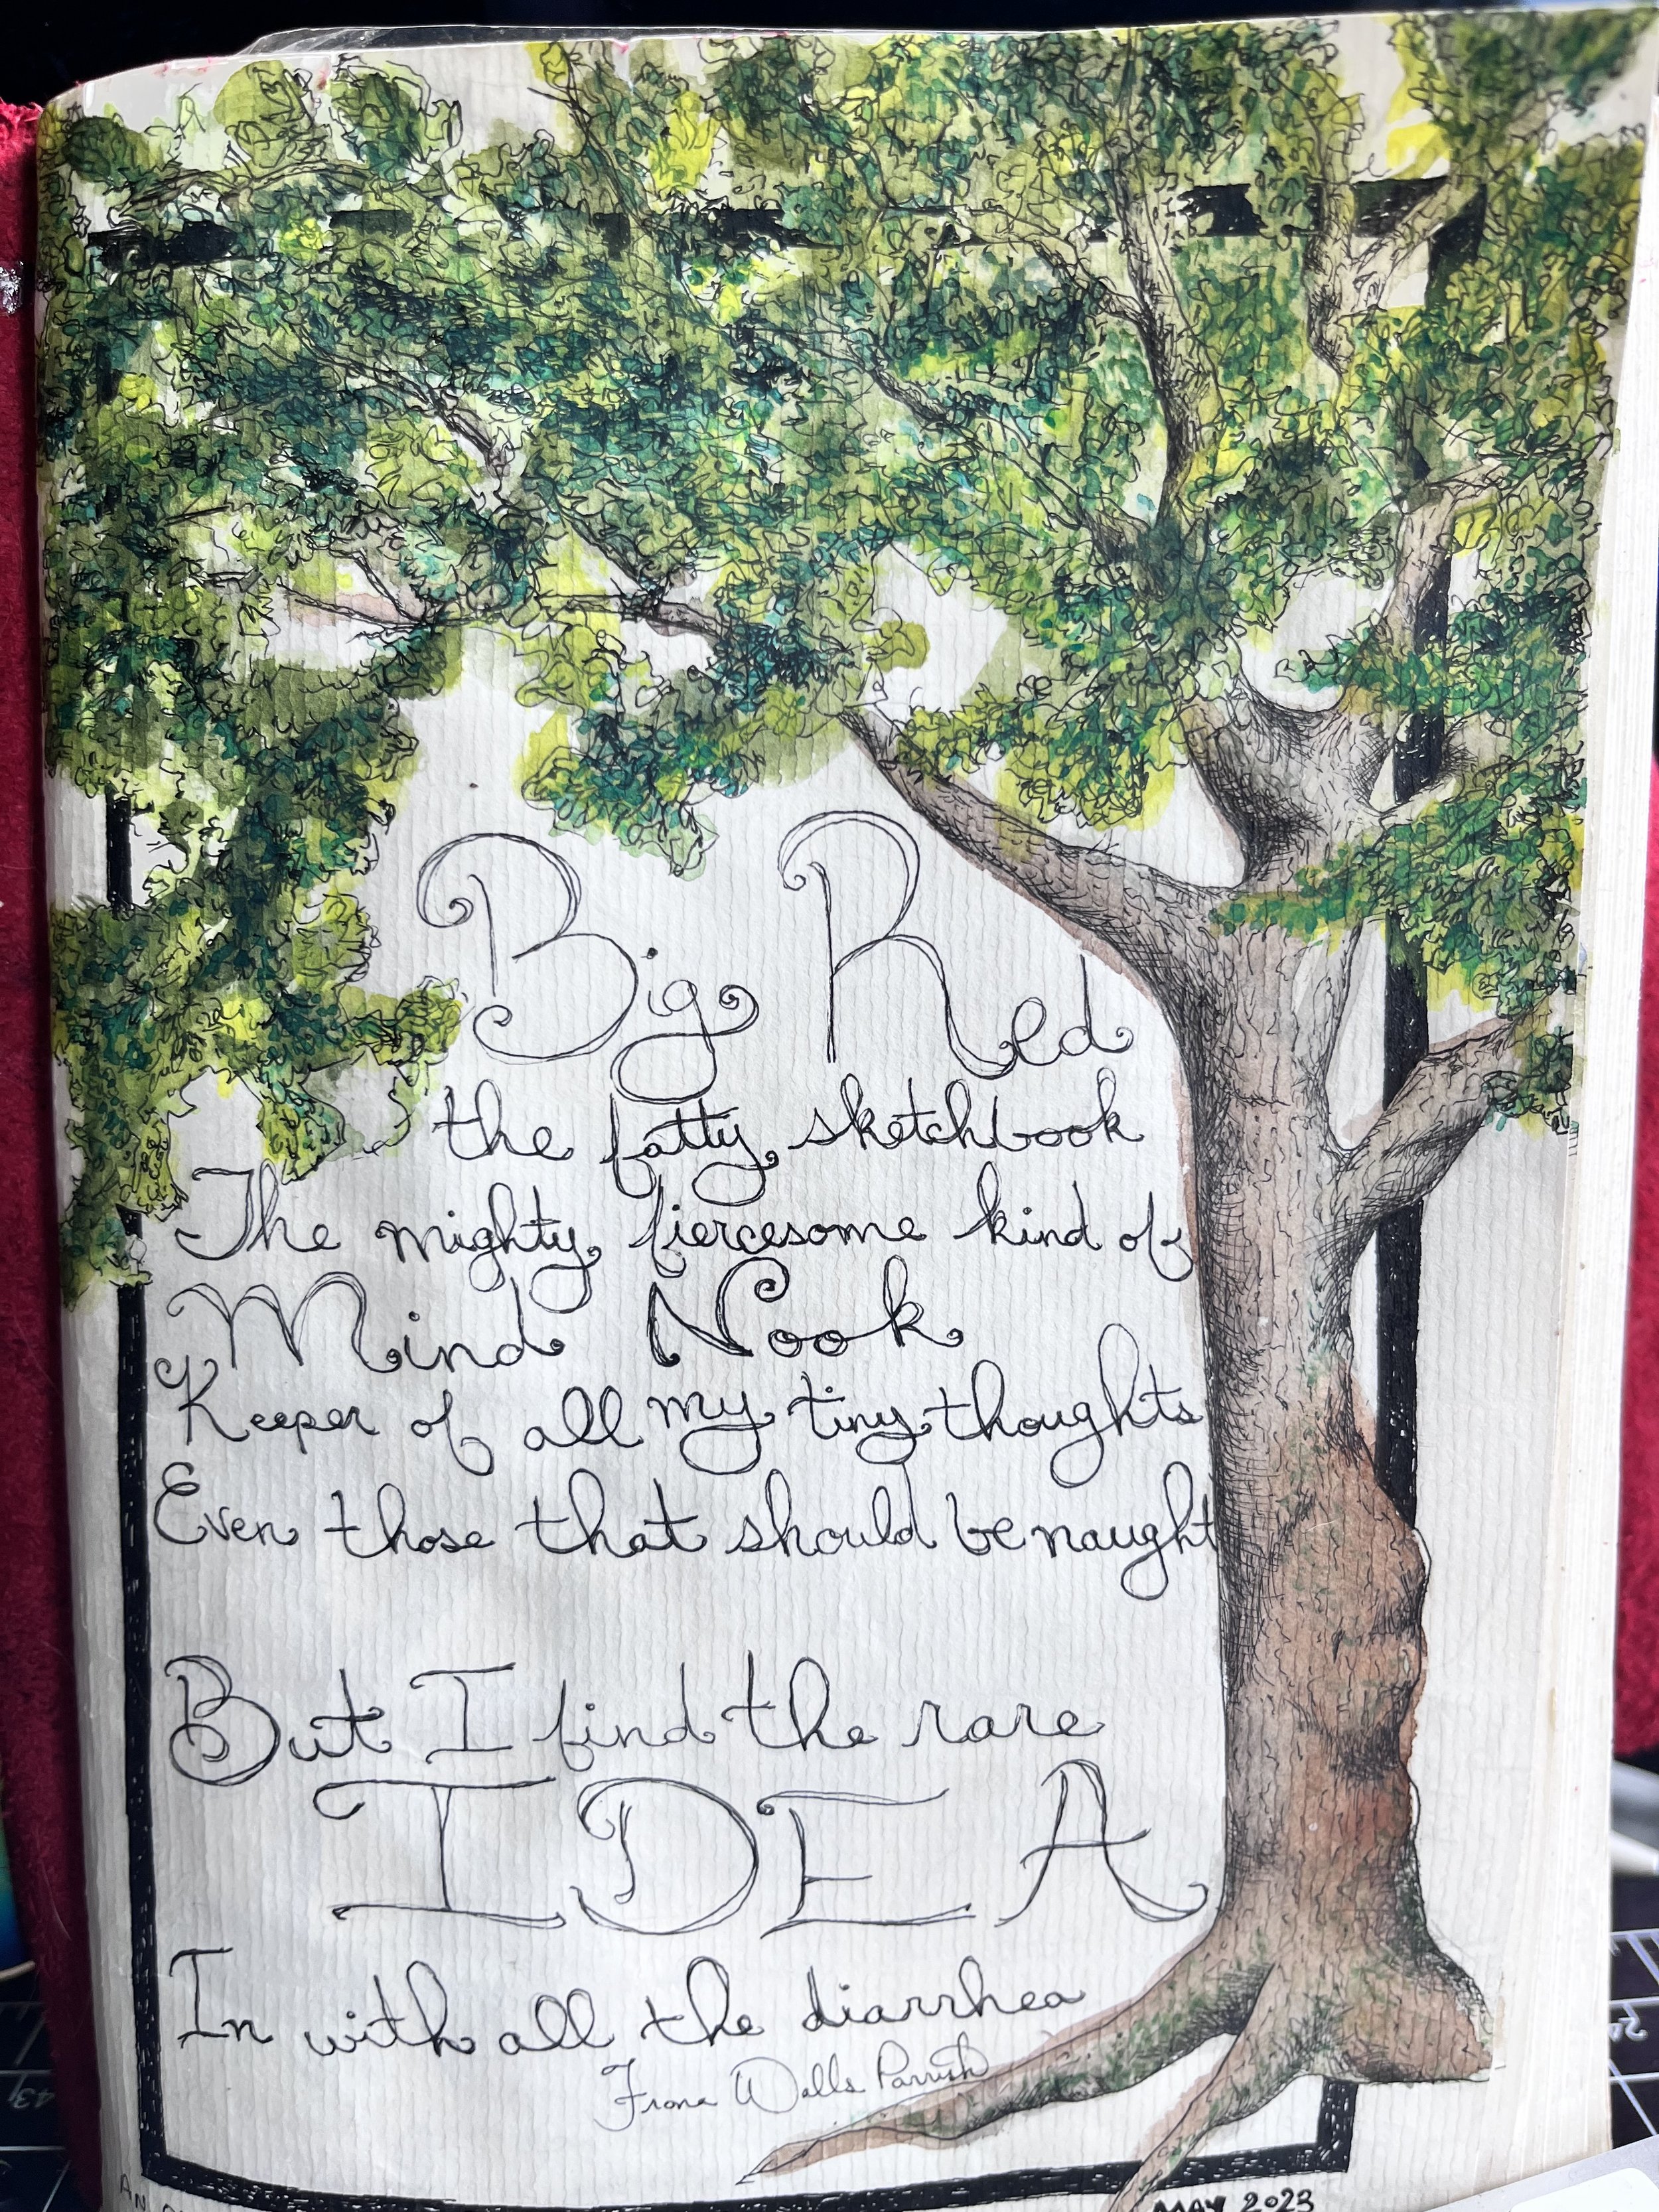 Big Red
the fatty sketchbook
The mighty fiercesome kind of
Mind Nook
Keeper of all my tiny thoughts
Even those that should be naught
But I find the rare
IDEA
In with all the diarrhea
Frona Walls Parrish
AN
MAY 2023